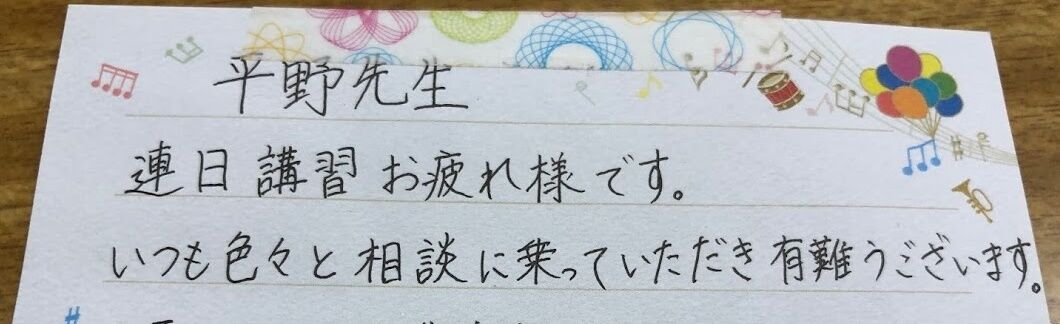 平野先生
連日講習お疲れ様です。
いつも色々と相談に乗っていただき有難うございます。